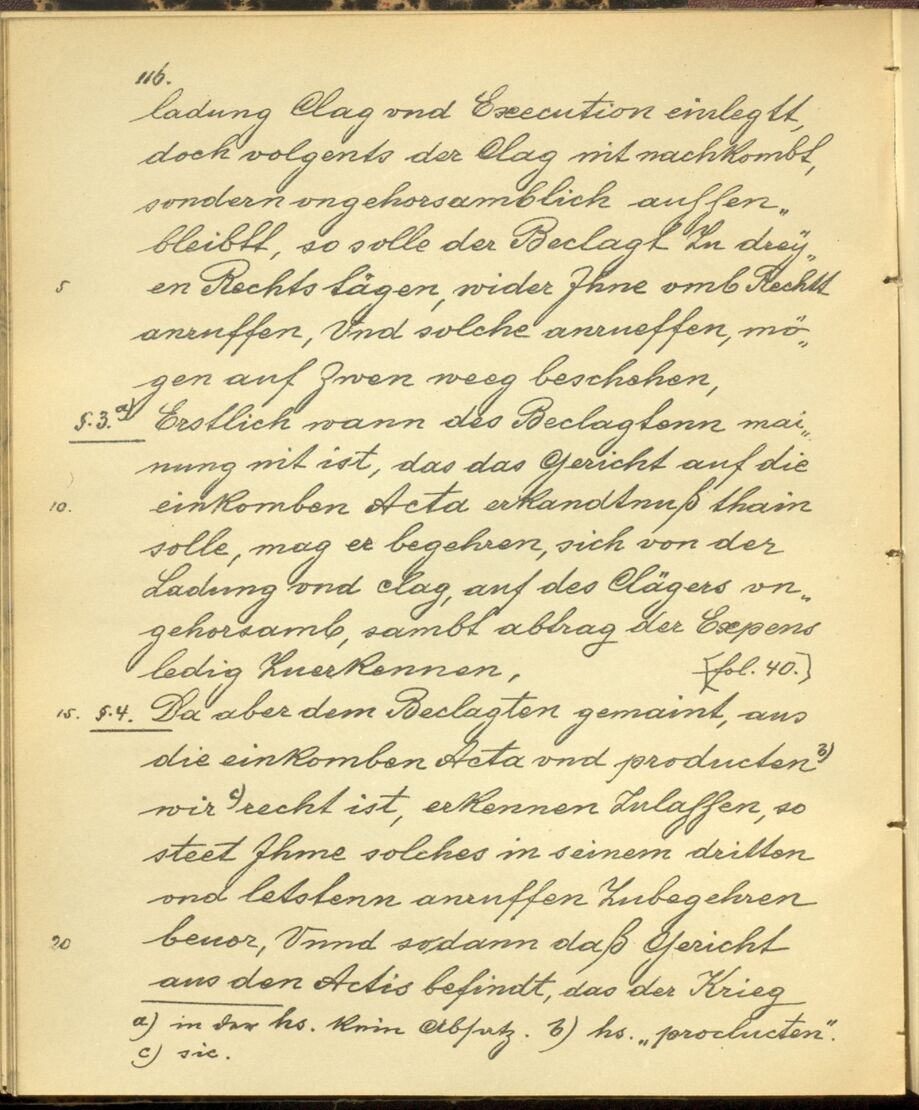 116.
ladung Clag vnd Execution einlegtt,
doch volgents der Clag nit nachkombt,
sondern vngehorsamblich aussen„
bleibtt, so solle der Beclagt Zu dreÿ„
5 en Rechts tägen, wider Jhne vmb Rechtt
anruffen, Vnd solche anrueffen, mö„
gen auf Zwen weeg beschehen,
§.3. a) Erstlich wann des Beclagtenn mai„
nung nit ist, das das Gericht auf die
10. einkomben Acta erkandtnuß thain
solle, mag er begehren, sich von der
Ladung vnd clag, auf des Clägers vn„
gehorsamb, sambt abtrag der Expens
ledig Zuerkennen, [fol. 40.]
15. §.4. Da aber dem Beclagten gemaint, aus
die einkomben Acta vnd producten b)
wir c) recht ist, erkennen Zulassen, so
steet Jhme solches in seinem dritten
vnd letstenn anruffen Zubegehren
20 beuor, Vnnd sodann daß Gericht
aus den Actis befindt, das der Krieg
a) in der hs. kein Absatz. b) hs. „producten".
c) sic.